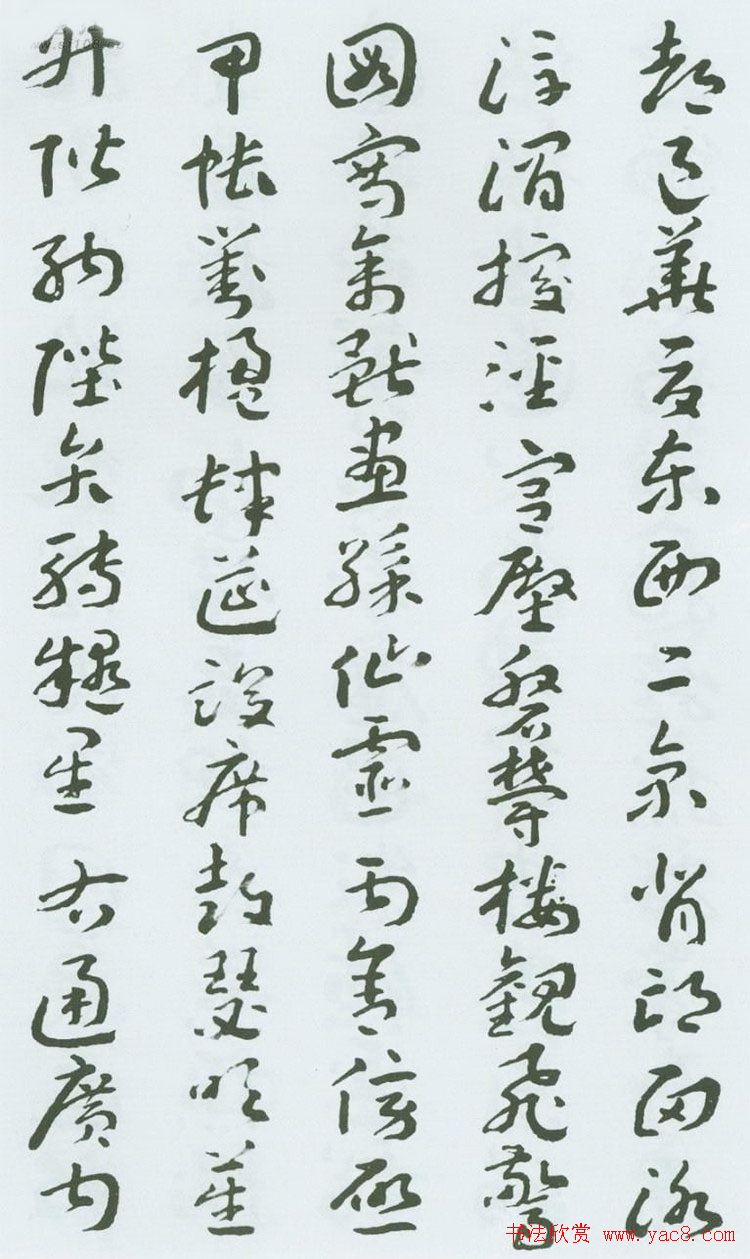 都邑華夏東西二京背邙面洛
浮渭據涇宮殿磐欝樓觀飛驚
圖寫禽獸畫綵仙靈丙舍傍啟
甲帳對楹肆筵設席鼓瑟吹笙
升階納陛弁轉疑星右通廣內
书法欣赏 www.yac8.com